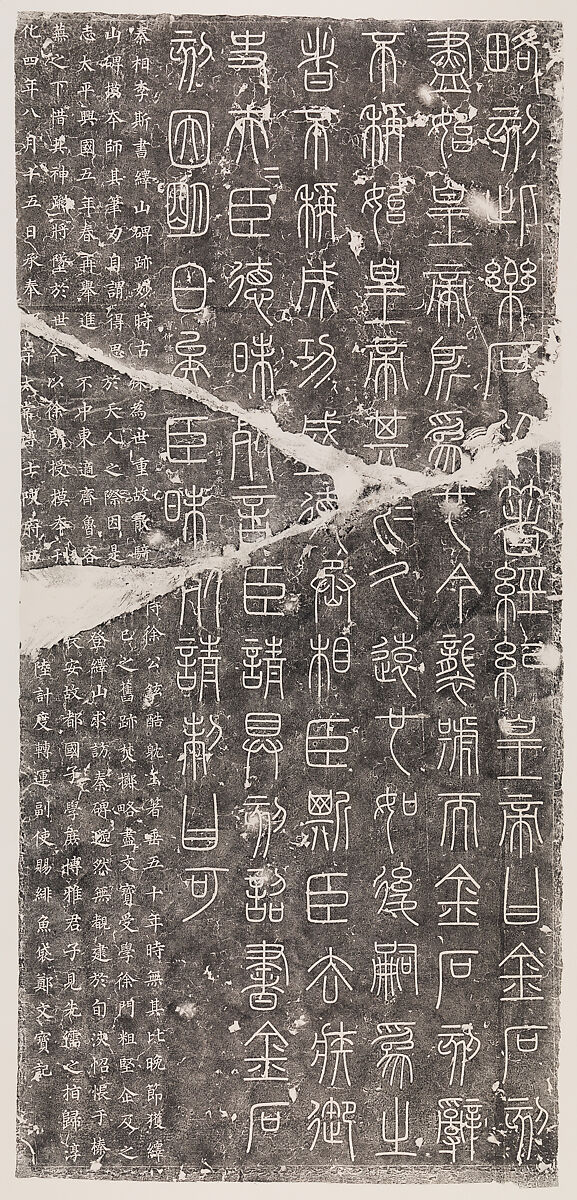 略刻此樂石以著經紀皇帝曰金石刻
盡始皇帝所為也今襲號而金石刻辭
不稱始皇帝其於久遠也如後嗣為之
者不稱成功盛德丞相臣斯臣去疾御
史夫=臣德昧死言臣請具刻詔書金石
刻因明白矣臣昧死請制曰可
秦相李斯書繹山碑跡妙時古殊為世重故散騎侍徐公鉉酷耽玉箸垂五十年時無其比晚節獲繹
山碑摸本師其筆力自謂得思於天人之際因是己之舊跡焚擲略盡文寶受學徐門粗堅企及之
志太平興國五年春再舉進不中東適齊魯客登繹山求訪秦碑邈然無覩逮於旬浹怊悵于榛
蕪之下惜其神蹤將墜於世今以徐所授摸本刊長安故都國子學庶博雅君子見先儒之指歸淳
化四年八月十五日承奉守太常博士陝府西陸計度轉運副使賜緋魚袋鄭文寶記